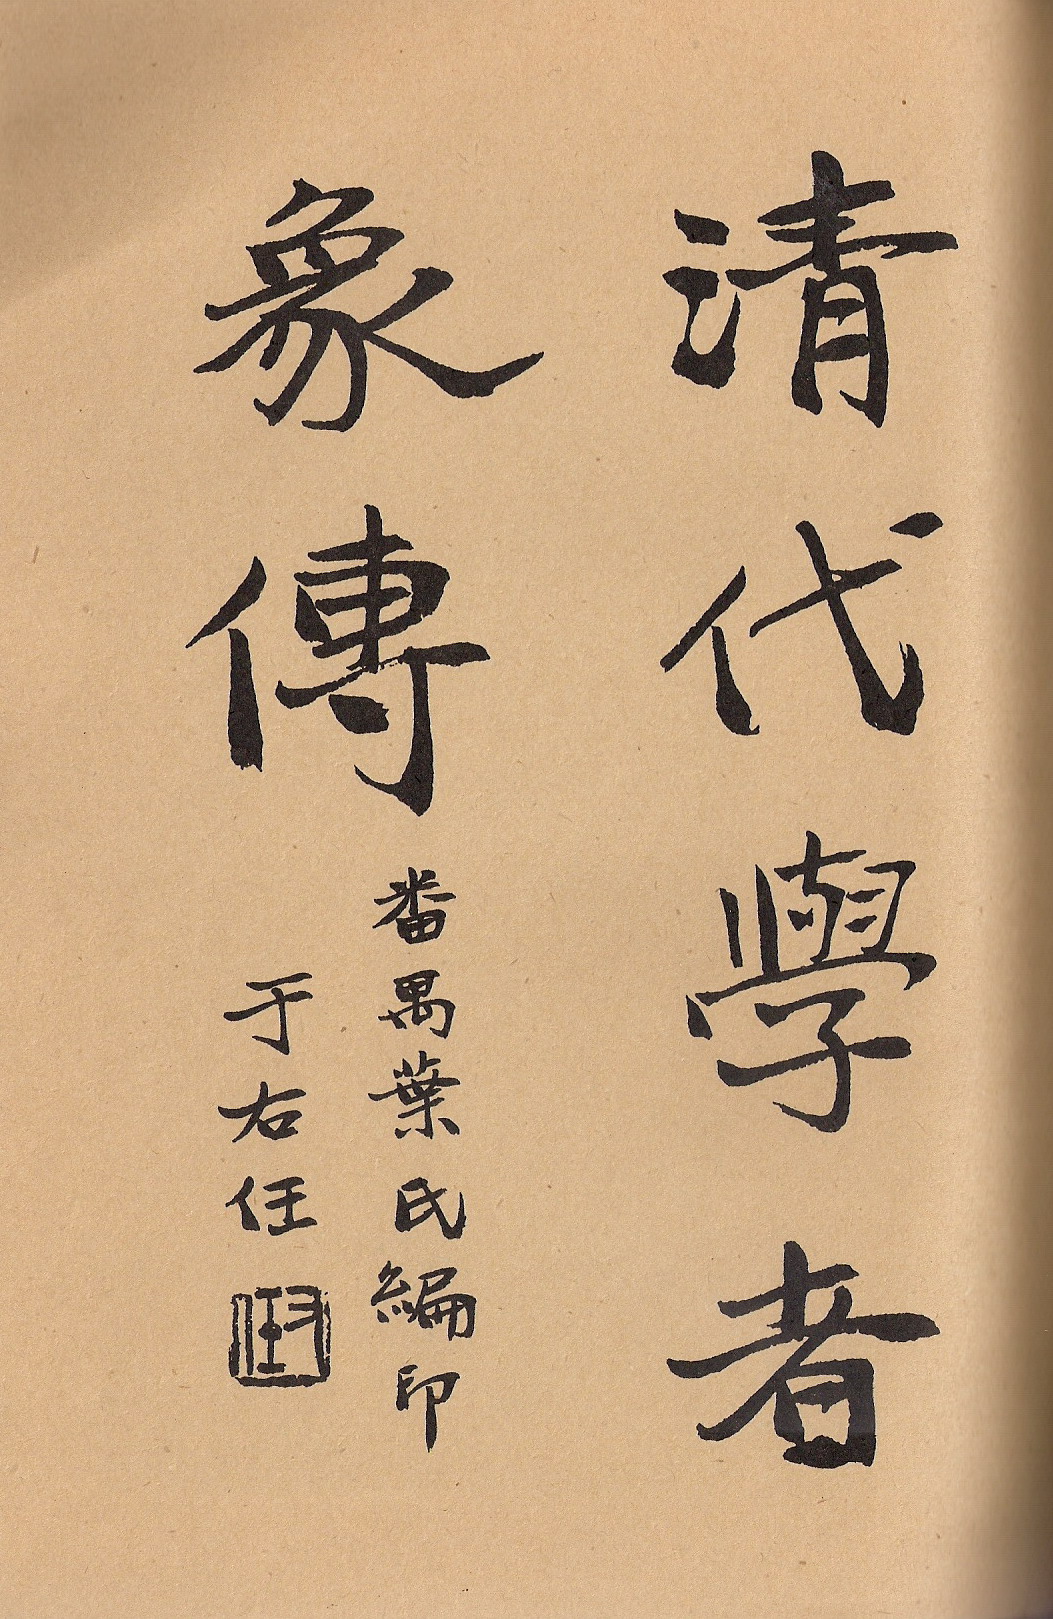 清代學者
象傳
番禺葉氏編印
于右任